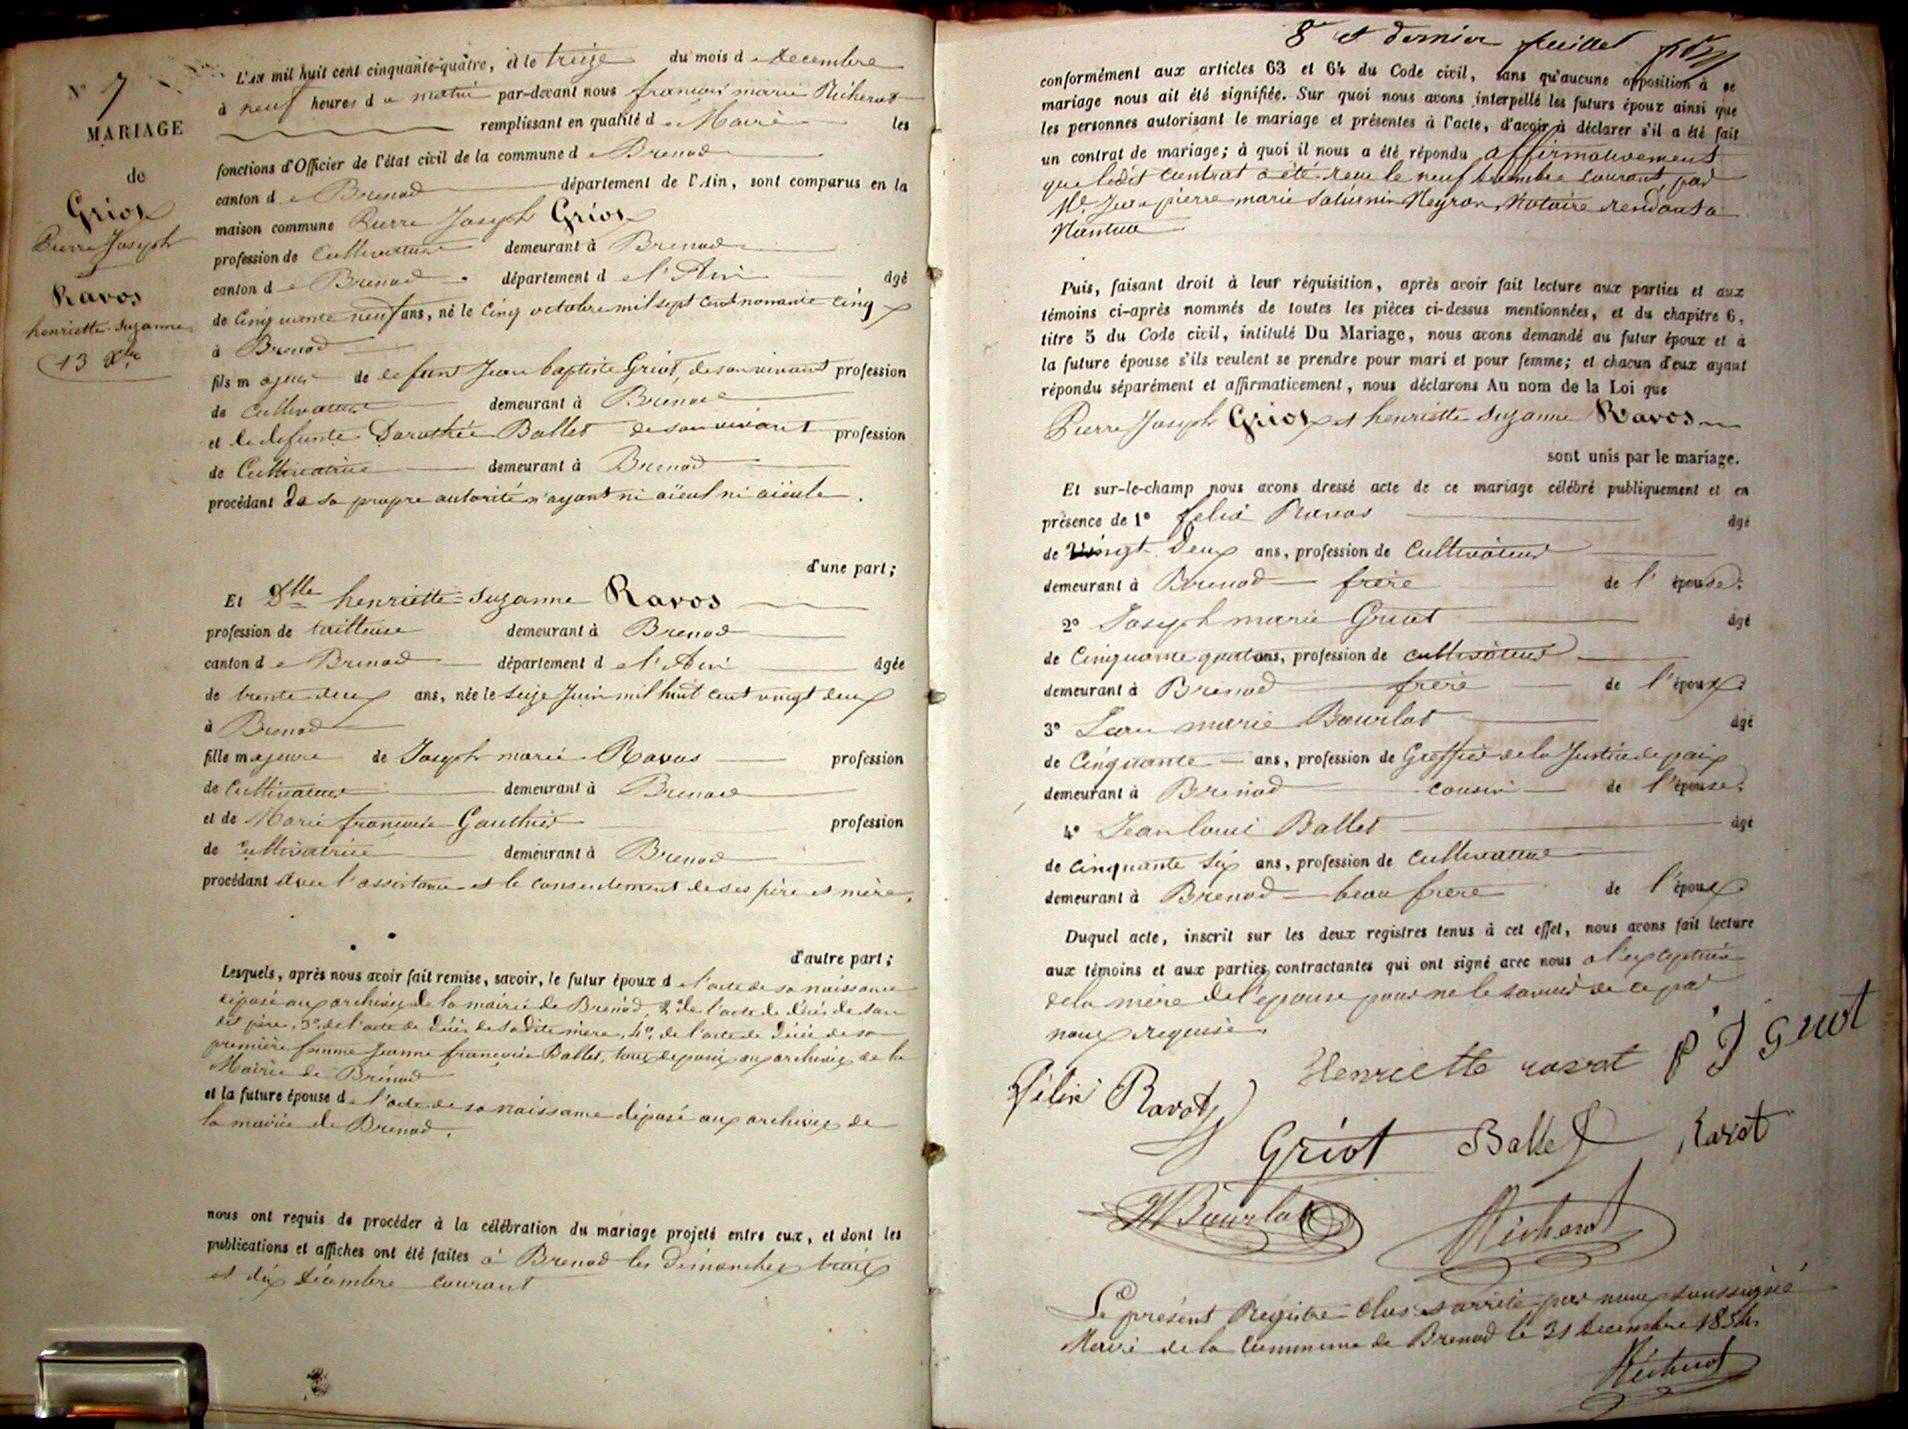 N° 7
MARIAGE
de
Griot
Pierre Joseph
&
Ravos
henriette Suzanne
13 Xbre
L'AN mil huit cent cinquante-quatre, et le treize du mois de decembre
à neuf heures du matin par-devant nous françois marie Richerot
remplissant en qualité de Maire les
fonctions d'Officier de l'état civil de la commune de Brenod
canton de Brenod département de l'Ain, sont comparus en la
maison commune Pierre Joseph Griot
profession de Cultivateur demeurant à Brenod
canton de Brenod département de l'Ain âgé
de Cinquante neuf ans, né le Cinq octobre mil sept cent nonante cinq
à Brenod
fils majeur de defunt Jean baptiste Griot, de son vivant profession
de Cultivateur demeurant à Brenod
et de defunte Dorothée Ballet de son vivant profession
de Cultivatrice demeurant à Brenod
procédant de sa propre autorité n'ayant ni aïeul ni aïeule.
d'une part;
Et Dlle henriette Suzanne Ravos
profession de tailleuse demeurant à Brenod
canton de Brenod département de l'Ain âgée
de trente deux ans, née le seize Juin mil huit cent vingt deux
à Brenod
fille majeure de Joseph marie Ravos profession
de Cultivateur demeurant à Brenod
et de Marie françoise Gauthier profession
de Cultivatrice demeurant à Brenod
procédant avec l'assistance et le consentement de ses père et mère.
d'autre part;
Lesquels, après nous avoir fait remise, savoir, le futur époux de l'acte de sa naissance
déposé aux archives de la mairie de Brenod, 2° de l'acte de décès de son
dit père, 3° de l'acte de décès de sa dite mère, 4° de l'acte de décès de sa
première femme Jeanne françoise Ballet, tous déposés aux archives de la
Mairie de Brenod
et la future épouse de l'acte de sa naissance déposé aux archives de
la mairie de Brenod.
nous ont requis de procéder à la célébration du mariage projeté entre eux, et dont les
publications et affiches ont été faites à Brenod les dimanches trois
et dix décembre courant
8e et dernier feuillet
conformément aux articles 63 et 64 du Code civil, sans qu'aucune opposition à ce
mariage nous ait été signifiée. Sur quoi nous avons interpellé les futurs époux ainsi que
les personnes autorisant le mariage et présentes à l'acte, d'avoir à déclarer s'il a été fait
un contrat de mariage; à quoi il nous a été répondu affirmativement
que ledit contrat a été reçu le neuf décembre courant par
Me Jean pierre marie Saturnin Neyron, Notaire résidant à
Nantua
Puis, faisant droit à leur réquisition, après avoir fait lecture aux parties et aux
témoins ci-après nommés de toutes les pièces ci-dessus mentionnées, et du chapitre 6,
titre 5 du Code civil, intitulé Du Mariage, nous avons demandé au futur époux et à
la future épouse s'ils veulent se prendre pour mari et pour femme; et chacun d'eux ayant
répondu séparément et affirmativement, nous déclarons Au nom de la Loi que
Pierre Joseph Griot et henriette Suzanne Ravos
sont unis par le mariage.
Et sur-le-champ nous avons dressé acte de ce mariage célébré publiquement et en
présence de 1° felix Ravos âgé
de Vingt deux ans, profession de Cultivateur
demeurant à Brenod frère de l'épouse.
2° Joseph marie Griot âgé
de Cinquante quatre ans, profession de cultivateur
demeurant à Brenod frère de l'époux.
3° Jean marie Bourlot âgé
de Cinquante ans, profession de Greffier de la Justice de paix
demeurant à Brenod cousin de l'épouse.
4° Jean louis Ballet âgé
de cinquante six ans, profession de cultivateur
demeurant à Brenod beau frere de l'époux
Duquel acte, inscrit sur les deux registres tenus à cet effet, nous avons fait lecture
aux témoins et aux parties contractantes qui ont signé avec nous à l'exception
de la mère de l'épouse pour ne le savoir de ce par
nous requise.
Henriette ravot P J Griot
félix Ravot
Griot Ballet Ravot
Bourlot Richerot
Le présent Registre clos et arrêté par nous soussigné
Maire de la Commune de Brenod le 31 decembre 1854.
Richerot